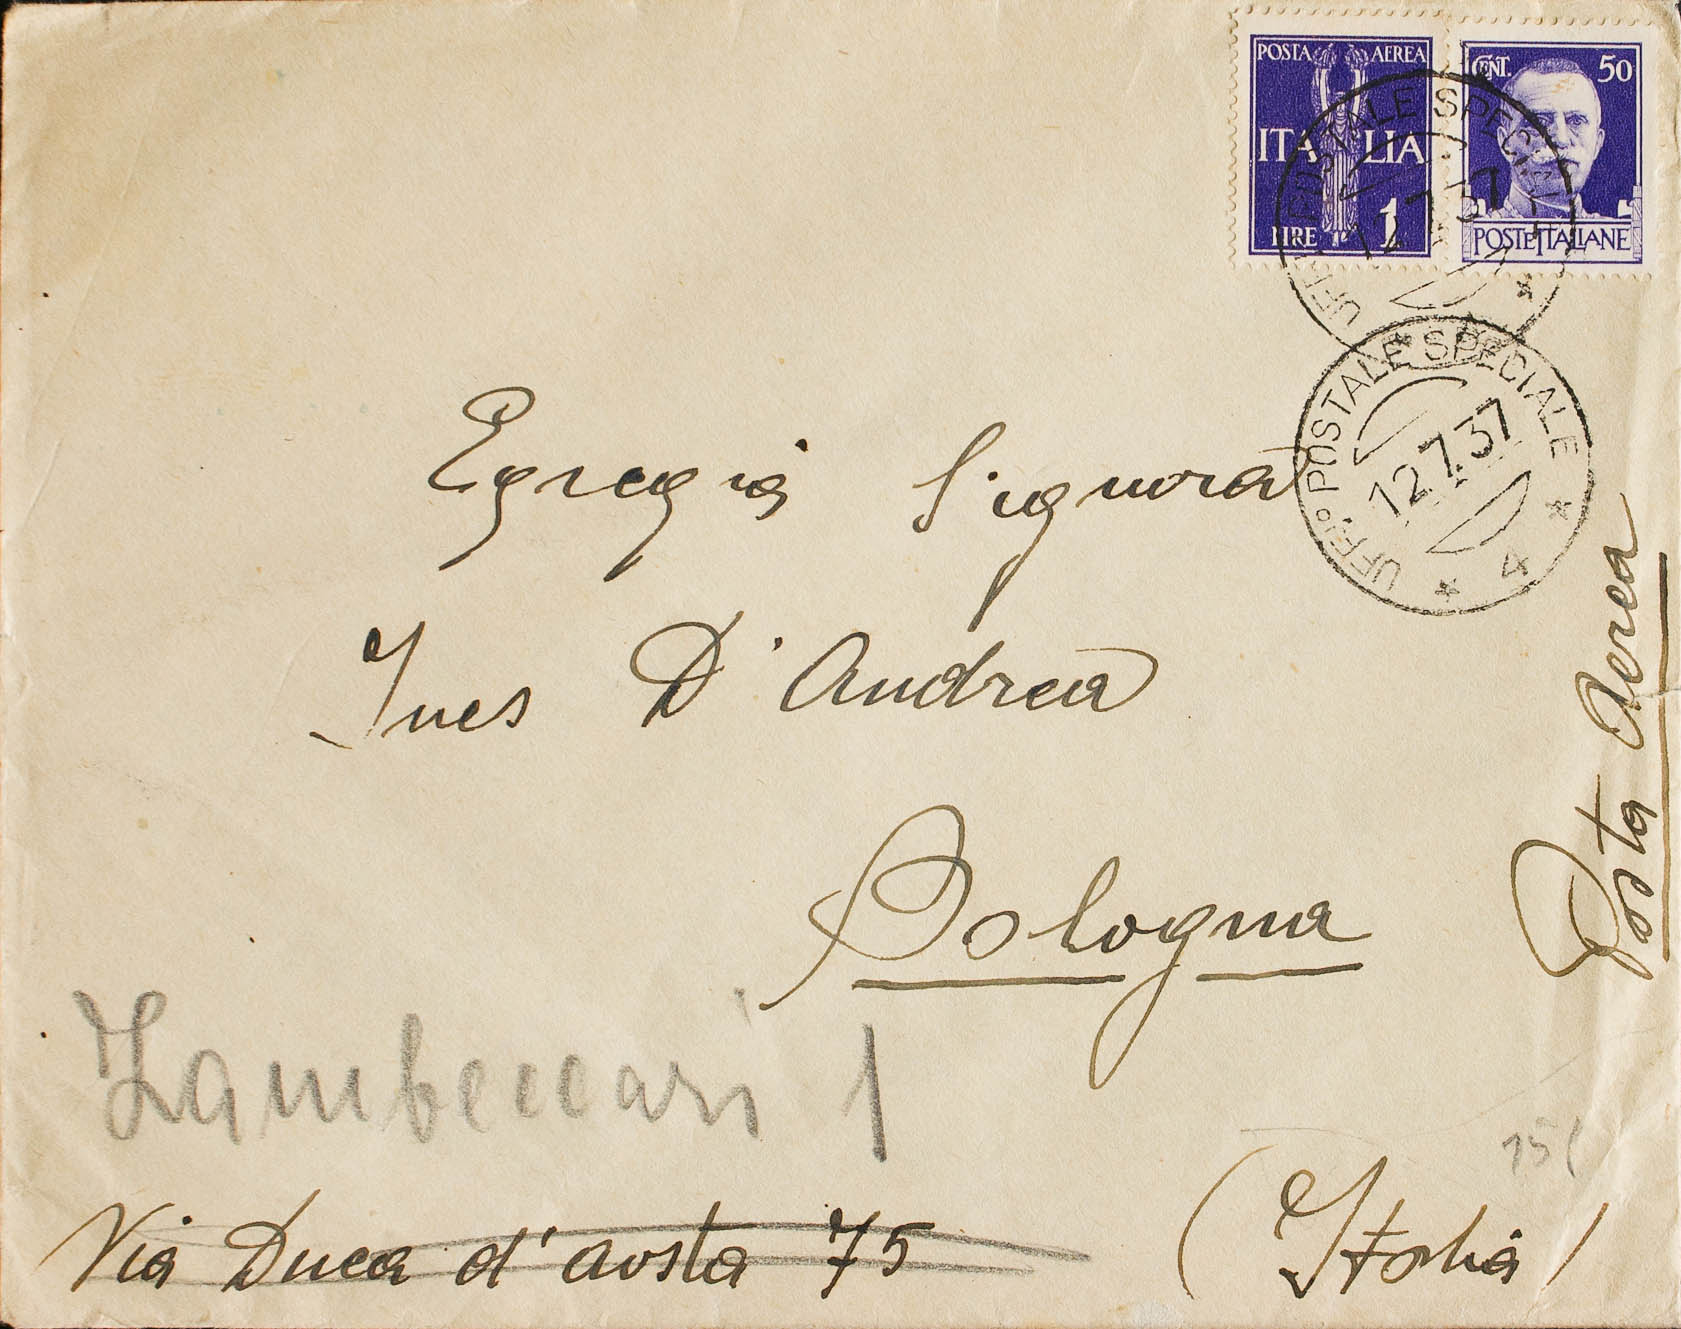 POSTA AEREA
ITALIA
LIRE 1
CENT. 50
POSTE ITALIANE
UFFIO POSTALE SPECIALE
12.7.37
UFFIO POSTALE SPECIALE
12.7.37
* 4 *
Egregia Signora
Ines D'Andrea
Bologna
Posta Aerea
Zambeccari 1
Via Duca d'aosta 75
(Italia)